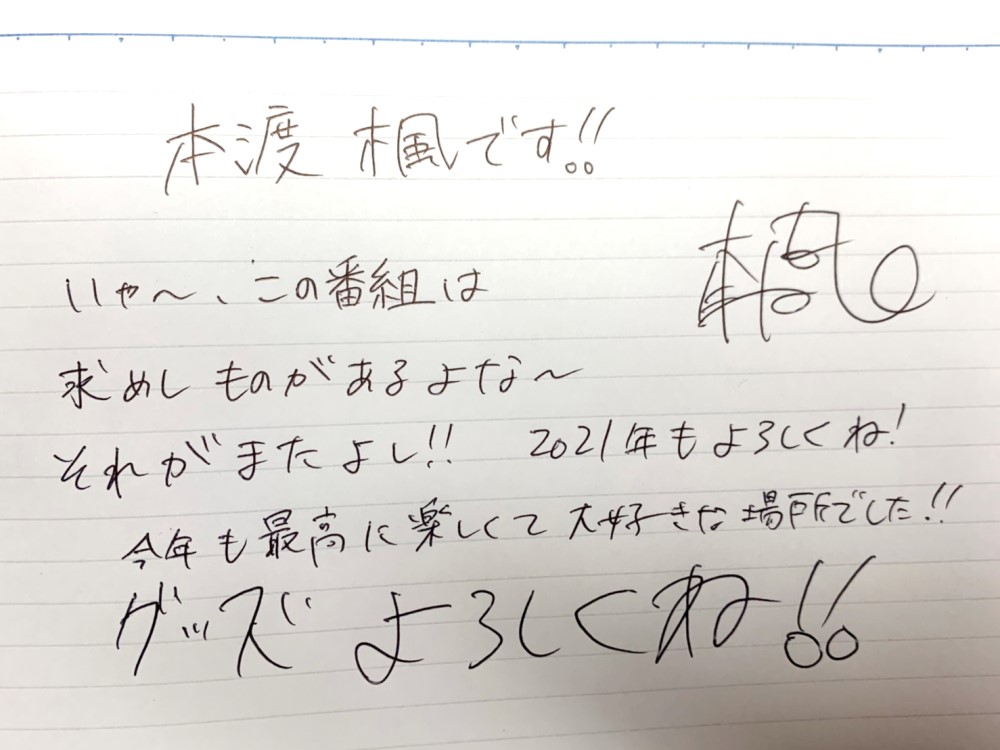 本渡 楓です!!
いや〜、この番組は
求めしものがあるよな〜
それがまたよし!! 2021年もよろしくね!
今年も最高に楽しくて大好きな場所でした!!
グッズよろしくね!!